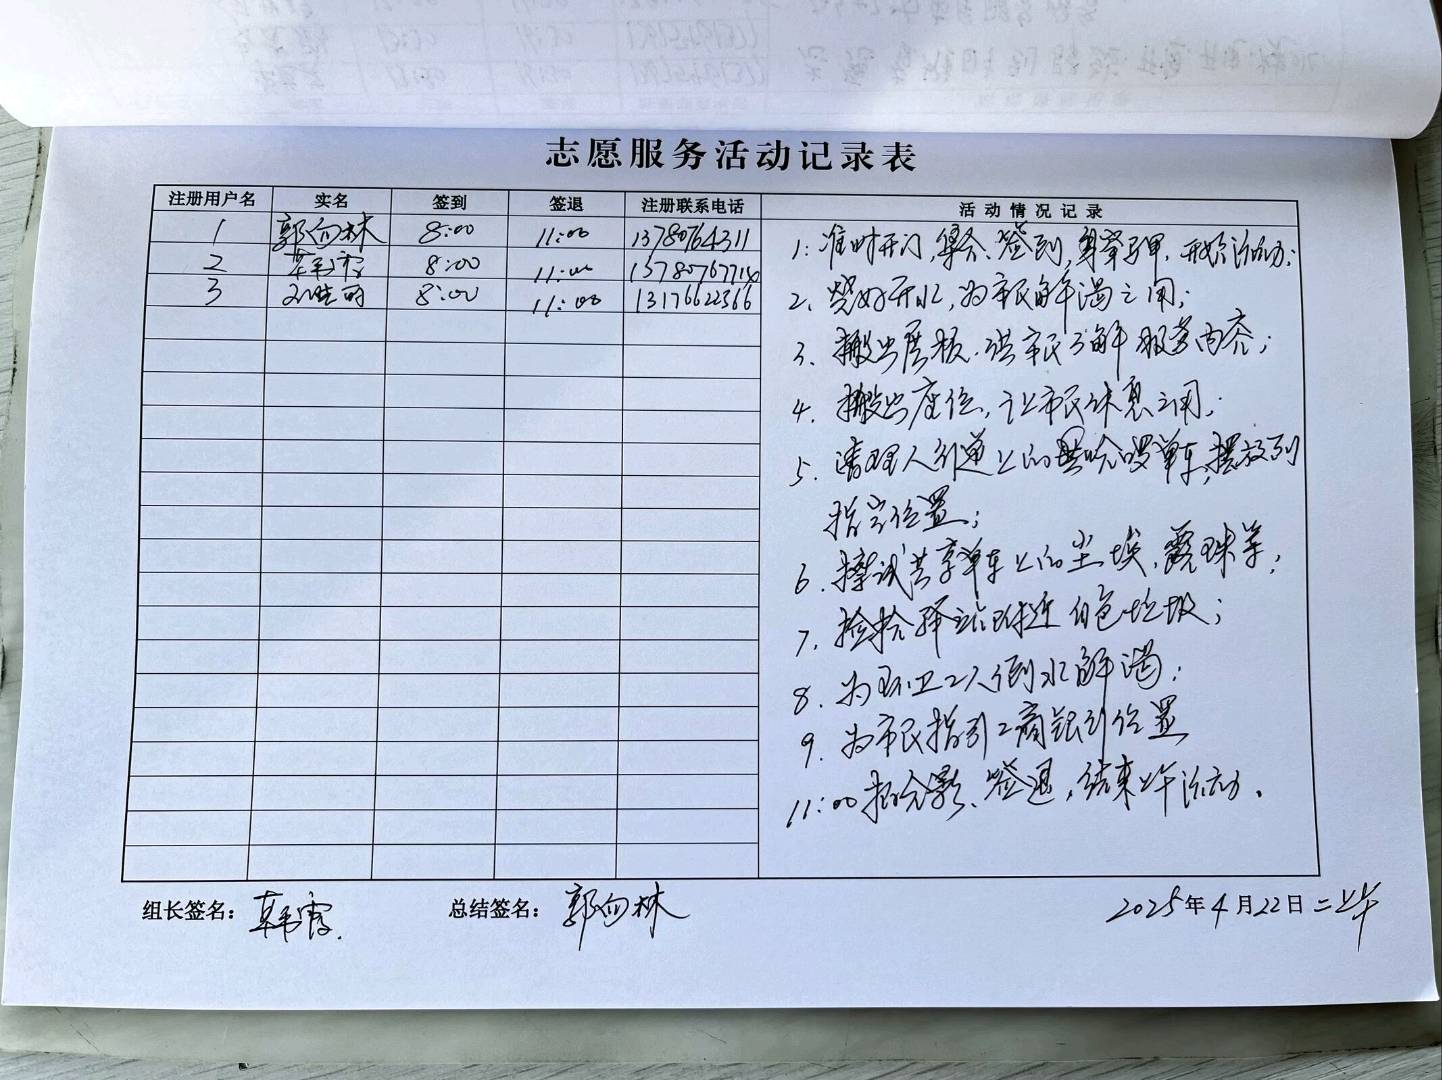 志愿服务活动记录表
注册用户名 实名 签到 签退 注册联系电话 活动情况记录
1 郭向林 8:00 11:00 13780764311
2 8:00 11:00
3 8:00 11:00 13176622366
1. 准时开门,集合、签到,穿马甲,开始活动;
2. 烧好开水,为市民解渴之用;
3. 搬出展板,供市民了解服务内容;
4. 搬出座位,让市民休息之用;
5. 清理人行道上的哈啰单车,摆放到
指定位置;
6. 擦试共享单车上的尘埃、露珠等;
7. 捡拾驿站附近白色垃圾;
8. 为环卫工人倒水解渴;
9. 为市民指引工商银行位置
11:00 拍合影、签退,结束上午活动。
组长签名: 韩霞 总结签名: 郭向林 2025年4月22日二上午